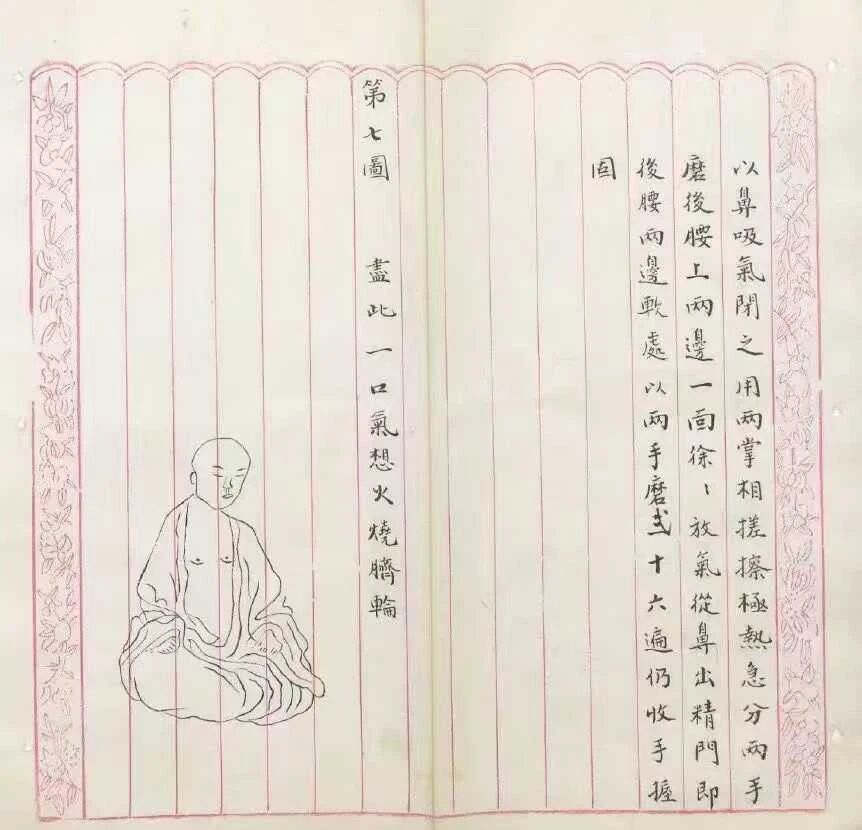 以鼻吸氣閉之用兩掌相搓擦極熱急分兩手
磨後腰上兩邊一面徐〻放氣從鼻出精門即
後腰兩邊軟處以兩手磨十六遍仍收手握
固
第七圖　盡此一口氣想火燒臍輪